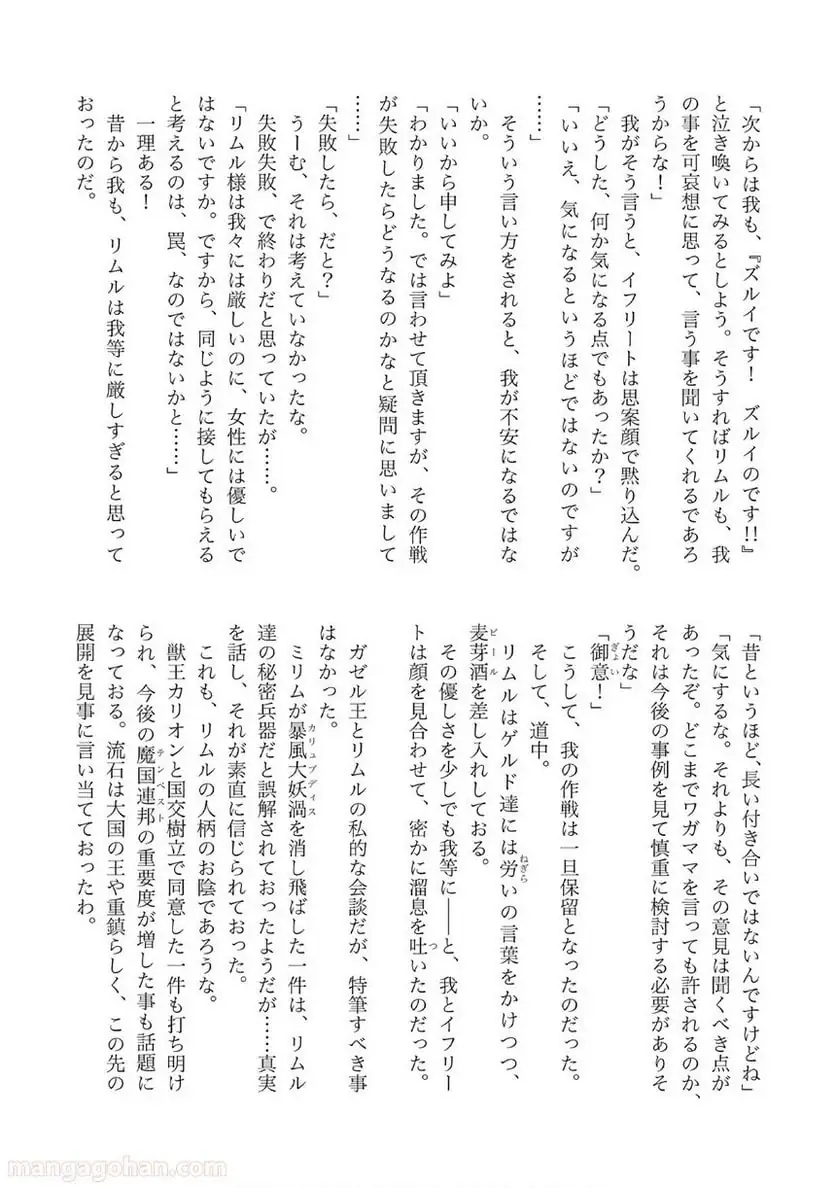 「次からは我も、『ズルイです！　ズルイのです!!』
と泣き喚いてみるとしよう。そうすればリムルも、我
の事を可哀想に思って、言う事を聞いてくれるであろ
うからな！」
　我がそう言うと、イフリートは思案顔で黙り込んだ。
「どうした、何か気になる点でもあったか？」
「いいえ、気になるというほどではないのですが
……」
　そういう言い方をされると、我が不安になるではな
いか。
「いいから申してみよ」
「わかりました。では言わせて頂きますが、その作戦
が失敗したらどうなるのかなと疑問に思いまして
……」
「失敗したら、だと？」
　うーむ、それは考えていなかったな。
　失敗失敗、で終わりだと思っていたが……。
「リムル様は我々には厳しいのに、女性には優しいで
はないですか。ですから、同じように接してもらえる
と考えるのは、罠、なのではないかと……」
　一理ある！
　昔から我も、リムルは我等に厳しすぎると思って
おったのだ。
「昔というほど、長い付き合いではないんですけどね」
「気にするな。それよりも、その意見は聞くべき点が
あったぞ。どこまでワガママを言っても許されるのか、
それは今後の事例を見て慎重に検討する必要がありそ
うだな」
「御意！」
ぎょい
　こうして、我の作戦は一旦保留となったのだった。
　そして、道中。
　リムルはゲルド達には労いの言葉をかけつつ、
ねぎら
麦芽酒を差し入れしておる。
ビール
　その優しさを少しでも我等に――と、我とイフリー
トは顔を見合わせて、密かに溜息を吐いたのだった。
つ
　ガゼル王とリムルの私的な会談だが、特筆すべき事
はなかった。
　ミリムが暴風大妖渦を消し飛ばした一件は、リムル
カリュブディス
達の秘密兵器だと誤解されておったようだが……真実
を話し、それが素直に信じられておった。
　これも、リムルの人柄のお陰であろうな。
　獣王カリオンと国交樹立で同意した一件も打ち明け
られ、今後の魔国連邦の重要度が増した事も話題に
テンペスト
なっておる。流石は大国の王や重鎮らしく、この先の
展開を見事に言い当てておったわ。
mangagohan.com